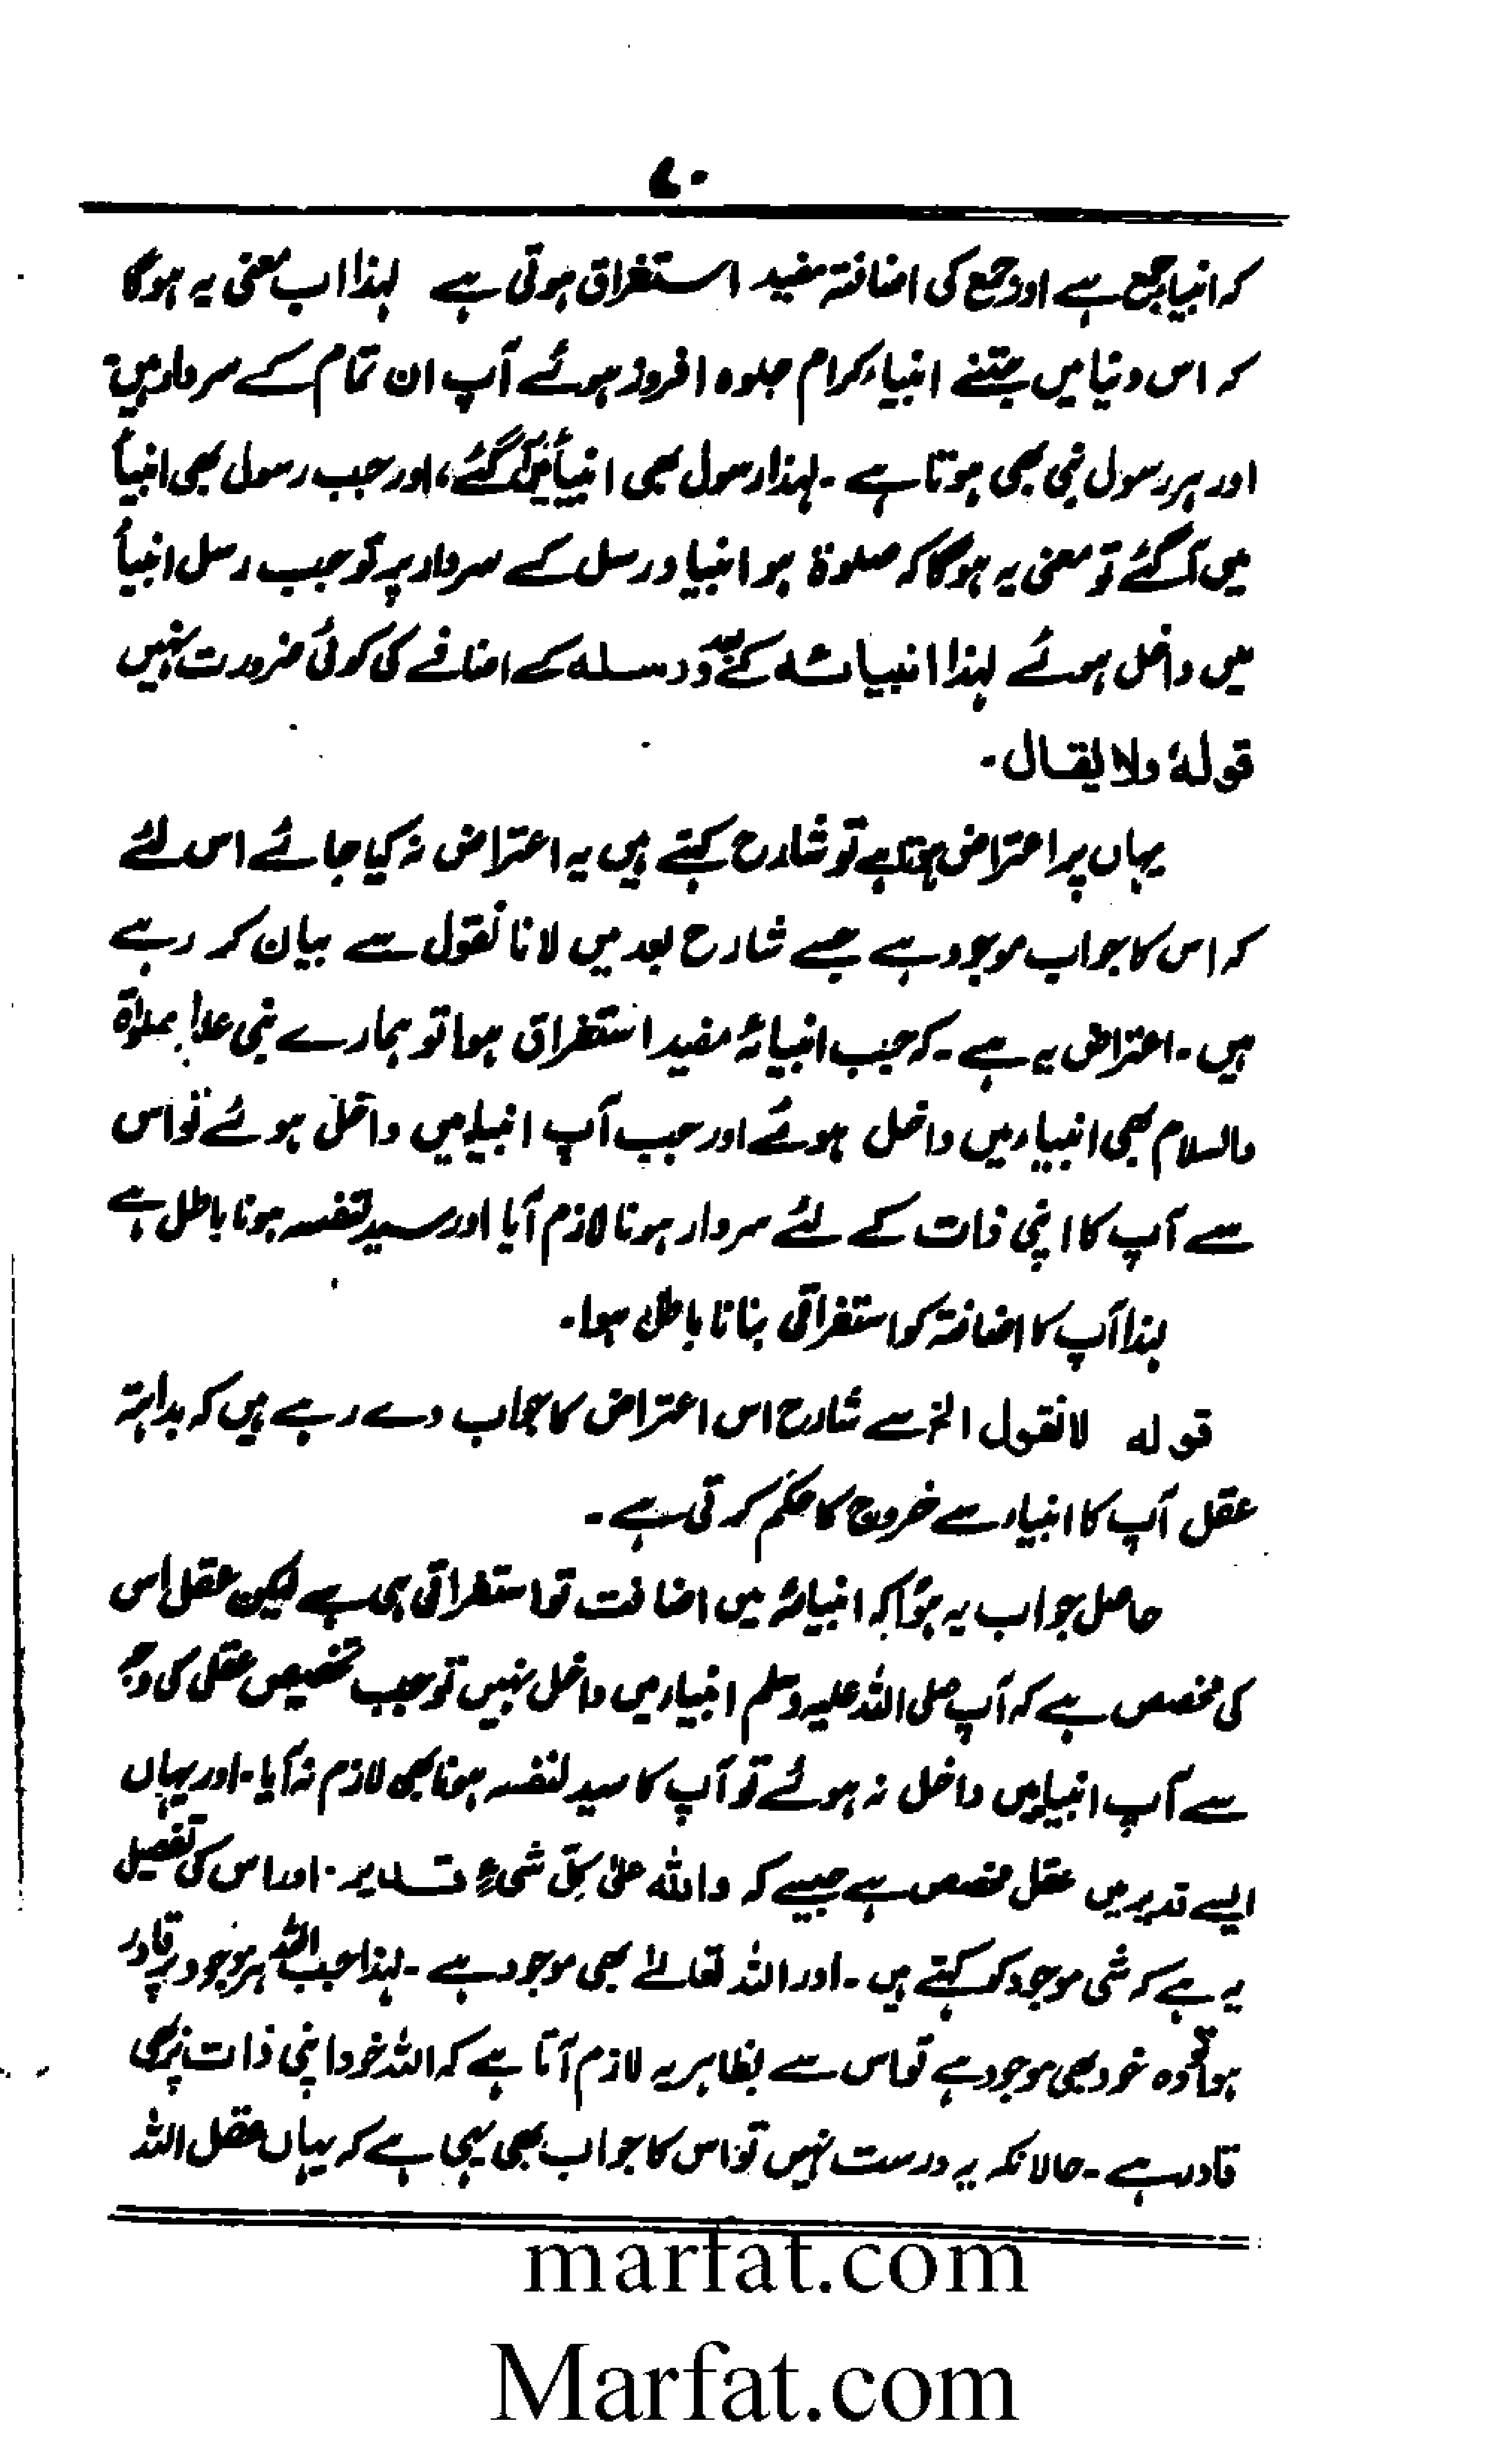 ۷۰
کہ انبیا جمع ہے اور جمع کی اضافتہ مفید استغراق ہوتی ہے لہذا اب معنی یہ ہوگا
کہ اس دنیا میں جتنے انبیاء کرام جلوہ افروز ہوئے آپ ان تمام کے سردار ہیں
اور ہر رسول نبی بھی ہوتا ہے ۔ لہذا رسول بھی انبیأ میں آگئے، اور جب رسول بھی انبیأ
میں آگئے تو معنی یہ ہوگا کہ صلوۃ ہو انبیا و رسل کے سردار پر تو جب رسل انبیأ
میں داخل ہوئے لہذا انبیائہ کے بعد و رسلہ کے اضافے کی کوئی ضرورت نہیں
قولہٗ ولا یقال ۔
یہاں پر اعتراض ہوتا ہے تو شارح کہتے ہیں یہ اعتراض نہ کیا جائے اس لئے
کہ اس کا جواب موجود ہے جسے شارح بعد میں لانا نقول سے بیان کر رہے
ہیں ۔ اعتراض یہ ہے ۔ کہ جب انبیائہ مفید استغراق ہوا تو ہمارے نبی علیہ الصلوٰۃ
والسلام بھی انبیاء میں داخل ہوئے اور جب آپ انبیاء میں داخل ہوئے تو اس
سے آپ کا اپنی ذات کے لئے سردار ہونا لازم آیا اور سید لنفسہ ہونا باطل ہے
لہذا آپ کا اضافتہ کو استغراقی بنانا باطل ہوا۔
قولہ لانقول الخ سے شارح اس اعتراض کا جواب دے رہے ہیں کہ بداہتہ
عقل آپ کا انبیاء سے خروج کا حکم کرتی ہے ۔
حاصل جواب یہ ہؤا کہ انبیائہ میں اضافت تو استغراقی ہی ہے لیکن عقل اس
کی مخصص ہے کہ آپ صلی اللہ علیہ وسلم انبیاء میں داخل نہیں تو جب تخصیص عقلی کی وجہ
سے آپ انبیاء میں داخل نہ ہوئے تو آپ کا سید لنفسہ ہونا بھی لازم نہ آیا ۔ اور یہاں
ایسے قدیر میں عقل مخصص ہے جیسے کہ واللہ علیٰ کلّ شیءٍ قدیر ۔ اور اس کی تفصیل
یہ ہے کہ شی موجود کو کہتے ہیں ۔ اور اللہ تعالےٰ بھی موجود ہے ۔ لہذا جب اللہ ہر موجود پر قادر
ہوا تو وہ خود بھی موجود ہے تو اس سے بظاہر یہ لازم آتا ہے کہ اللہ خود اپنی ذات پر بھی
قادر ہے ۔ حالانکہ یہ درست نہیں تو اس کا جواب بھی یہی ہے کہ یہاں عقل اللہ
marfat.com
Marfat.com